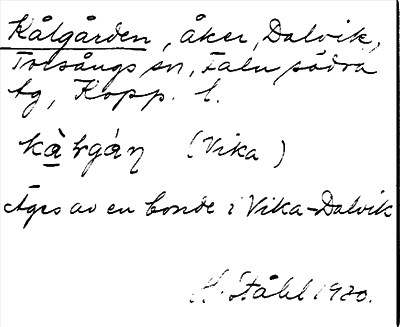 Kålgården, åker, Dalvik,
Torsångs sn, Falu södra
tg, Kopp. l.
kàlgáṇ (Vika)
Äges av en bonde i Vika-Dalvik
H. Ståhl 1930.